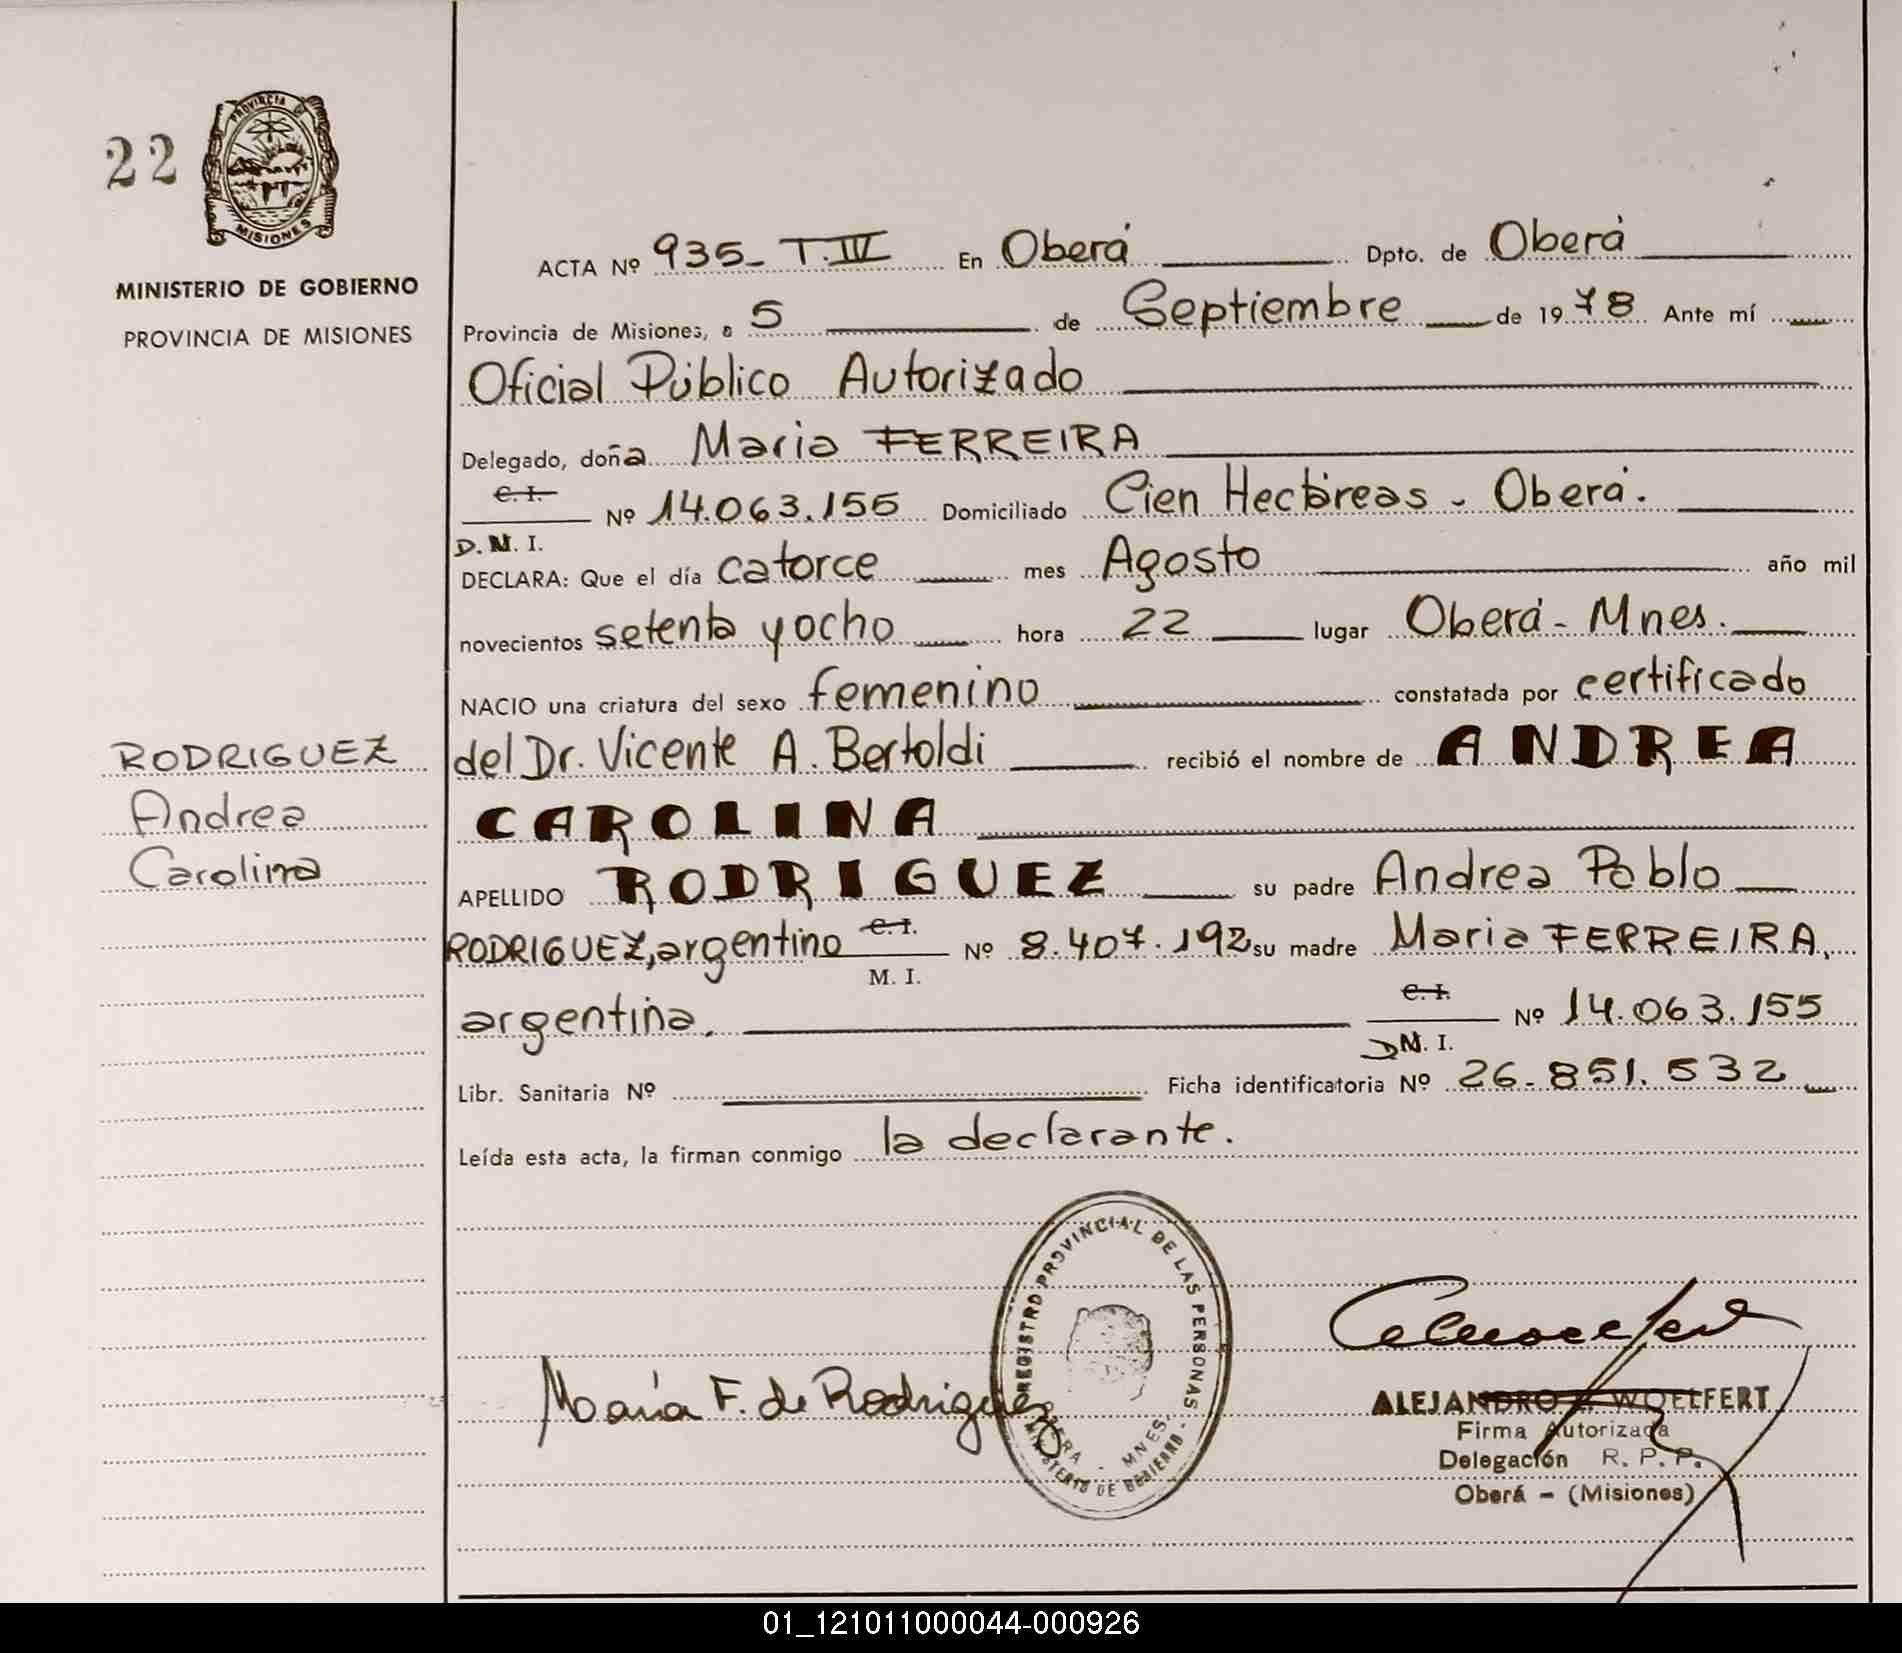 22
PROVINCIA DE
MISIONES
MINISTERIO DE GOBIERNO
PROVINCIA DE MISIONES
ACTA Nº 935_ T.IV En Oberá Dpto. de Oberá
Provincia de Misiones, a 5 de Septiembre de 1978 Ante mí
Oficial Público Autorizado
Delegado, doña Maria FERREIRA
C.I.
Nº 14.063.155 Domiciliado Cien Hectáreas - Oberá.
D.N.I.
DECLARA: Que el día catorce mes Agosto año mil
novecientos setenta y ocho hora 22 lugar Oberá - Mnes.
NACIO una criatura del sexo femenino constatada por certificado
del Dr. Vicente A. Bertoldi recibió el nombre de ANDREA
CAROLINA
APELLIDO RODRIGUEZ su padre Andrea Pablo
RODRIGUEZ, argentino C.I. Nº 8.407.192 su madre Maria FERREIRA,
M. I.
argentina. C.I. Nº 14.063.155
DN. I.
Libr. Sanitaria Nº Ficha identificatoria Nº 26-851.532
Leída esta acta, la firman conmigo la declarante.
RODRIGUEZ
Andrea
Carolina
María F. de Rodriguez
REGISTRO PROVINCIAL DE LAS PERSONAS
OBERA - MNES.
MINISTERIO DE GOBIERNO
ALEJANDRO WOELFERT
Firma Autorizada
Delegación R. P. P.
Oberá - (Misiones)
01_121011000044-000926